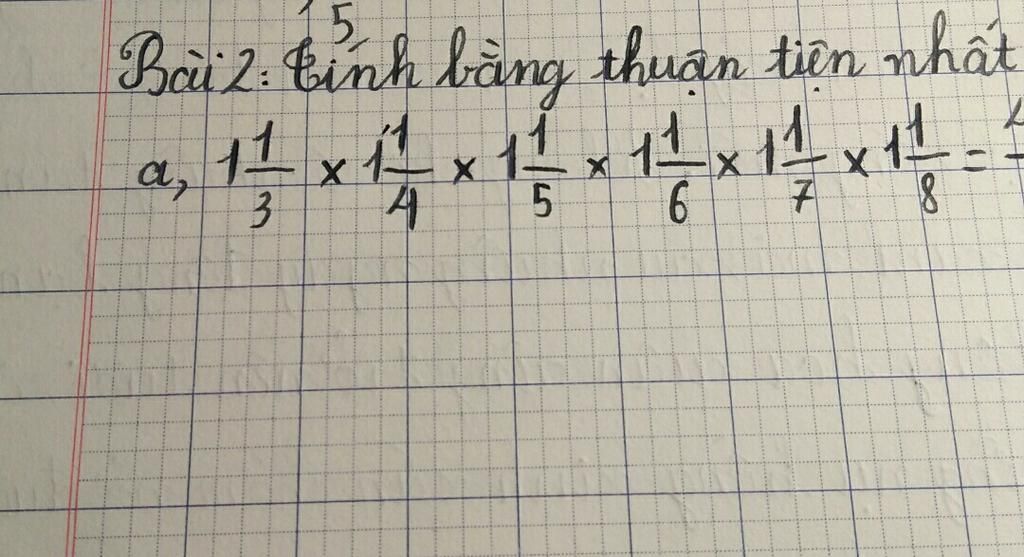 5
Bài 2: tính bằng thuận tiện nhất
a, 1 1/3 × 1 1/4 × 1 1/5 × 1 1/6 × 1 1/7 × 1 1/8 =